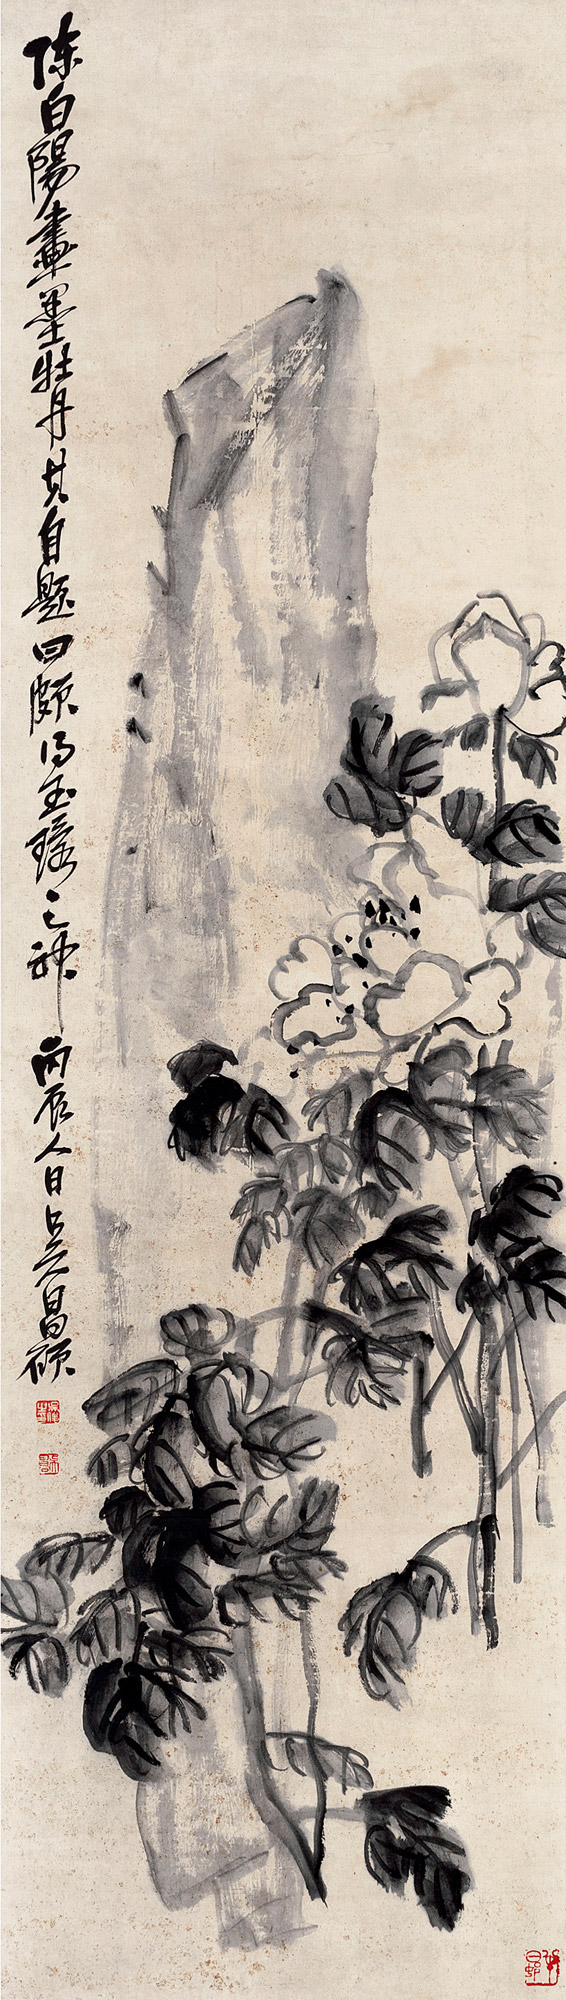 陈白陽畫墨牡丹其自题曰頗得玉環之神丙辰人日吳昌碩